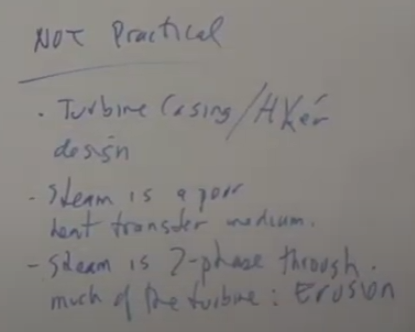 NOT Practical
- Turbine Casing/HXer
design
- Steam is a poor
heat transfer medium.
- Steam is 2-phase through
much of the turbine: Erosion